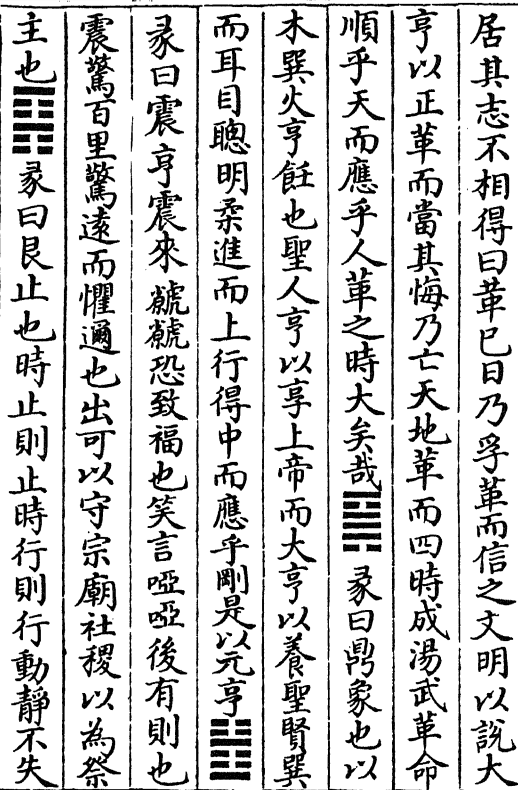 居其志不相得曰革已日乃孚革而信之文明以說大
亨以正革而當其悔乃亡天地革而四時成湯武革命
順乎天而應乎人革之時大矣哉䷱彖曰鼎象也以
木巽火亨飪也聖人亨以享上帝而大亨以養聖賢巽
而耳目聰明柔進而上行得中而應乎剛是以元亨䷲
彖曰震亨震來虩虩恐致福也笑言啞啞後有則也
震驚百里驚遠而懼邇也出可以守宗廟社稷以為祭
主也䷳彖曰艮止也時止則止時行則行動靜不失